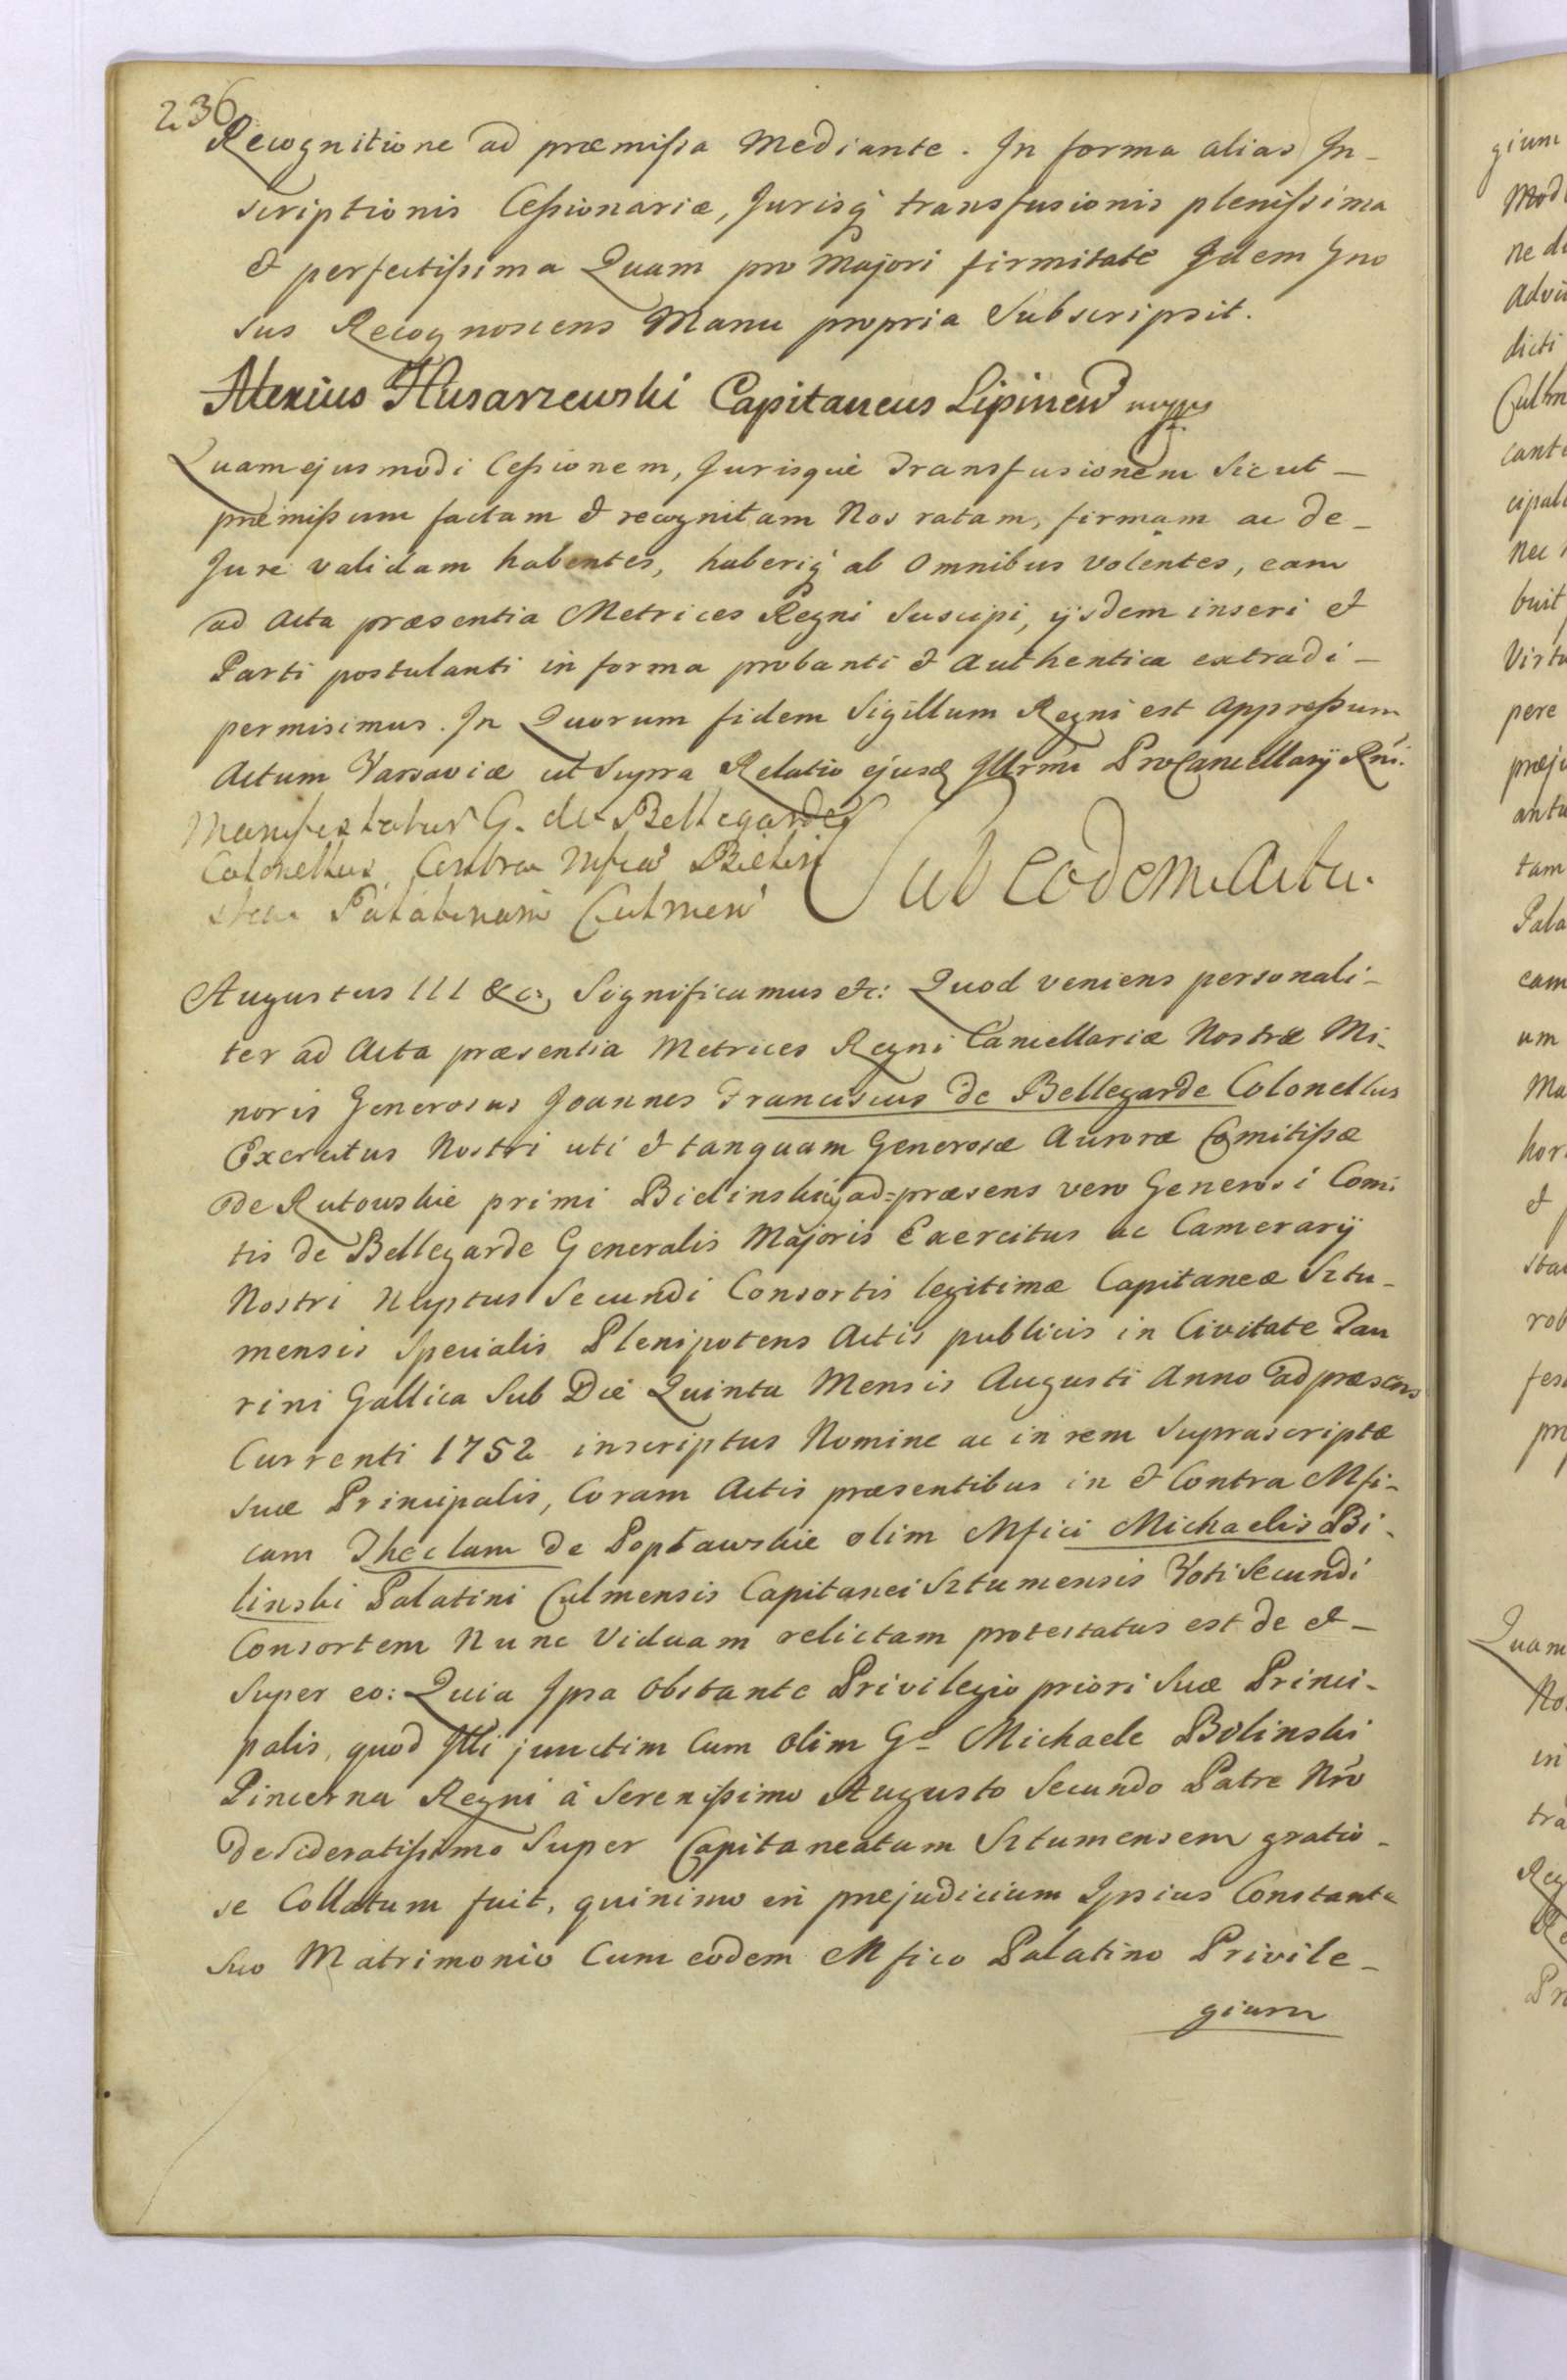 236
Recognitione ad præmissa Mediante. In forma alias In-
scriptionis Cessionariæ, Jurisq transfusionis plenissima
& perfectissima Quam pro Majori firmitate Idem Gno
sus Recognoscens Manu propria Subscripsit.
Alexius Husarzewski Capitaneus Lipinen mppr
Quam ejusmodi Cessionem, Jurisque Transfusionem Sicut-
præmissum factam & recognitam Nos ratam, firmam ac de-
Jure validam habentes, haberiq ab Omnibus Volentes, eam
ad Acta præsentia Metrices Regni Suscipi, ijsdem inseri &
Parti postulanti in forma probanti & Authentica extradi-
permisimus. In Quorum fidem Sigillum Regni est Appressum
Actum Varsaviæ ut Supra Relatio ejusd Illrmi ProCancellarij Rni.
Manifestatur G. de Bellegarde
Colonellus Contra Mfcam Bielin
skam Palatinam Culmen
Sub eodem Actu.
Augustus III &c, Significamus etc: Quod veniens personali-
ter ad Acta præsentia Metrices Regni Cancellariæ Nostræ Mi-
noris Generosus Joannes Franciscus de Bellegarde Colonellus
Exercitus Nostri uti & tanquam Generosæ Auroræ Comitissæ
de Rutowskie primi Bielinskij ad=præsens vero Generosi Comi-
tis de Bellegarde Generalis Majoris Exercitus ac Camerarij
Nostri Nuptus Secundi Consortis legitimæ Capitaneæ Sztu-
mensis Specialis Plenipotens Actis publicis in Civitate Tau
rini Gallica Sub Die Quinta Mensis Augusti Anno ad præsens
Currenti 1752 inscriptus Nomine ac in rem Suprascriptæ
suæ Principalis, Coram Actis præsentibus in & Contra Mfi-
cam Theclam de Popławskie olim Mfici Michaelis Bi-
linski Palatini Culmensis Capitanei Sztumensis Voti Secundi
Consortem Nunc Viduam relictam protestatus est de &-
Super eo: Quia Ipsa Obstante Privilegio priori Suæ Princi-
palis, quod Illi junctim Cum olim Go Michaele Bolinski
Pincerna Regni à Serenissimo Augusto Secundo Patre Nro
desideratissimo Super Capitaneatum Sztumensem gratio-
se Collatum fuit, quinimo in præjudicium Ipsius Constante
Suo Matrimonio Cum eodem Mfico Palatino Privile-
gium